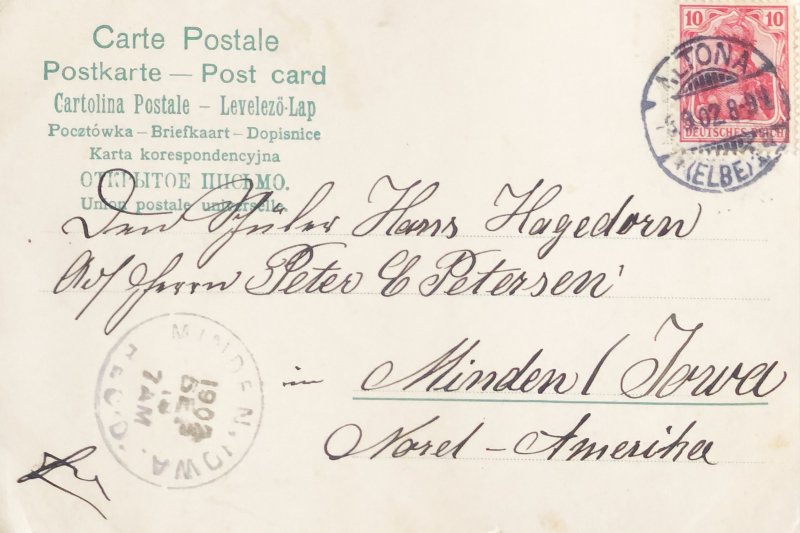 Carte Postale
Postkarte — Post card
Cartolina Postale – Levelező-Lap
Pocztówka – Briefkaart – Dopisnice
Karta korespondencyjna
ОТКРЫТОЕ ПИСЬМО.
Union postale universelle.
10 10
DEUTSCHES REICH
ALTONA
9.02. 8-9
(ELBE)
Den Schüler Hans Hagedorn
Herrn Peter C Petersen
in Minden / Iowa
Nord-Amerika
MINDEN, IOWA.
REC'D.
1902
DEC
7AM